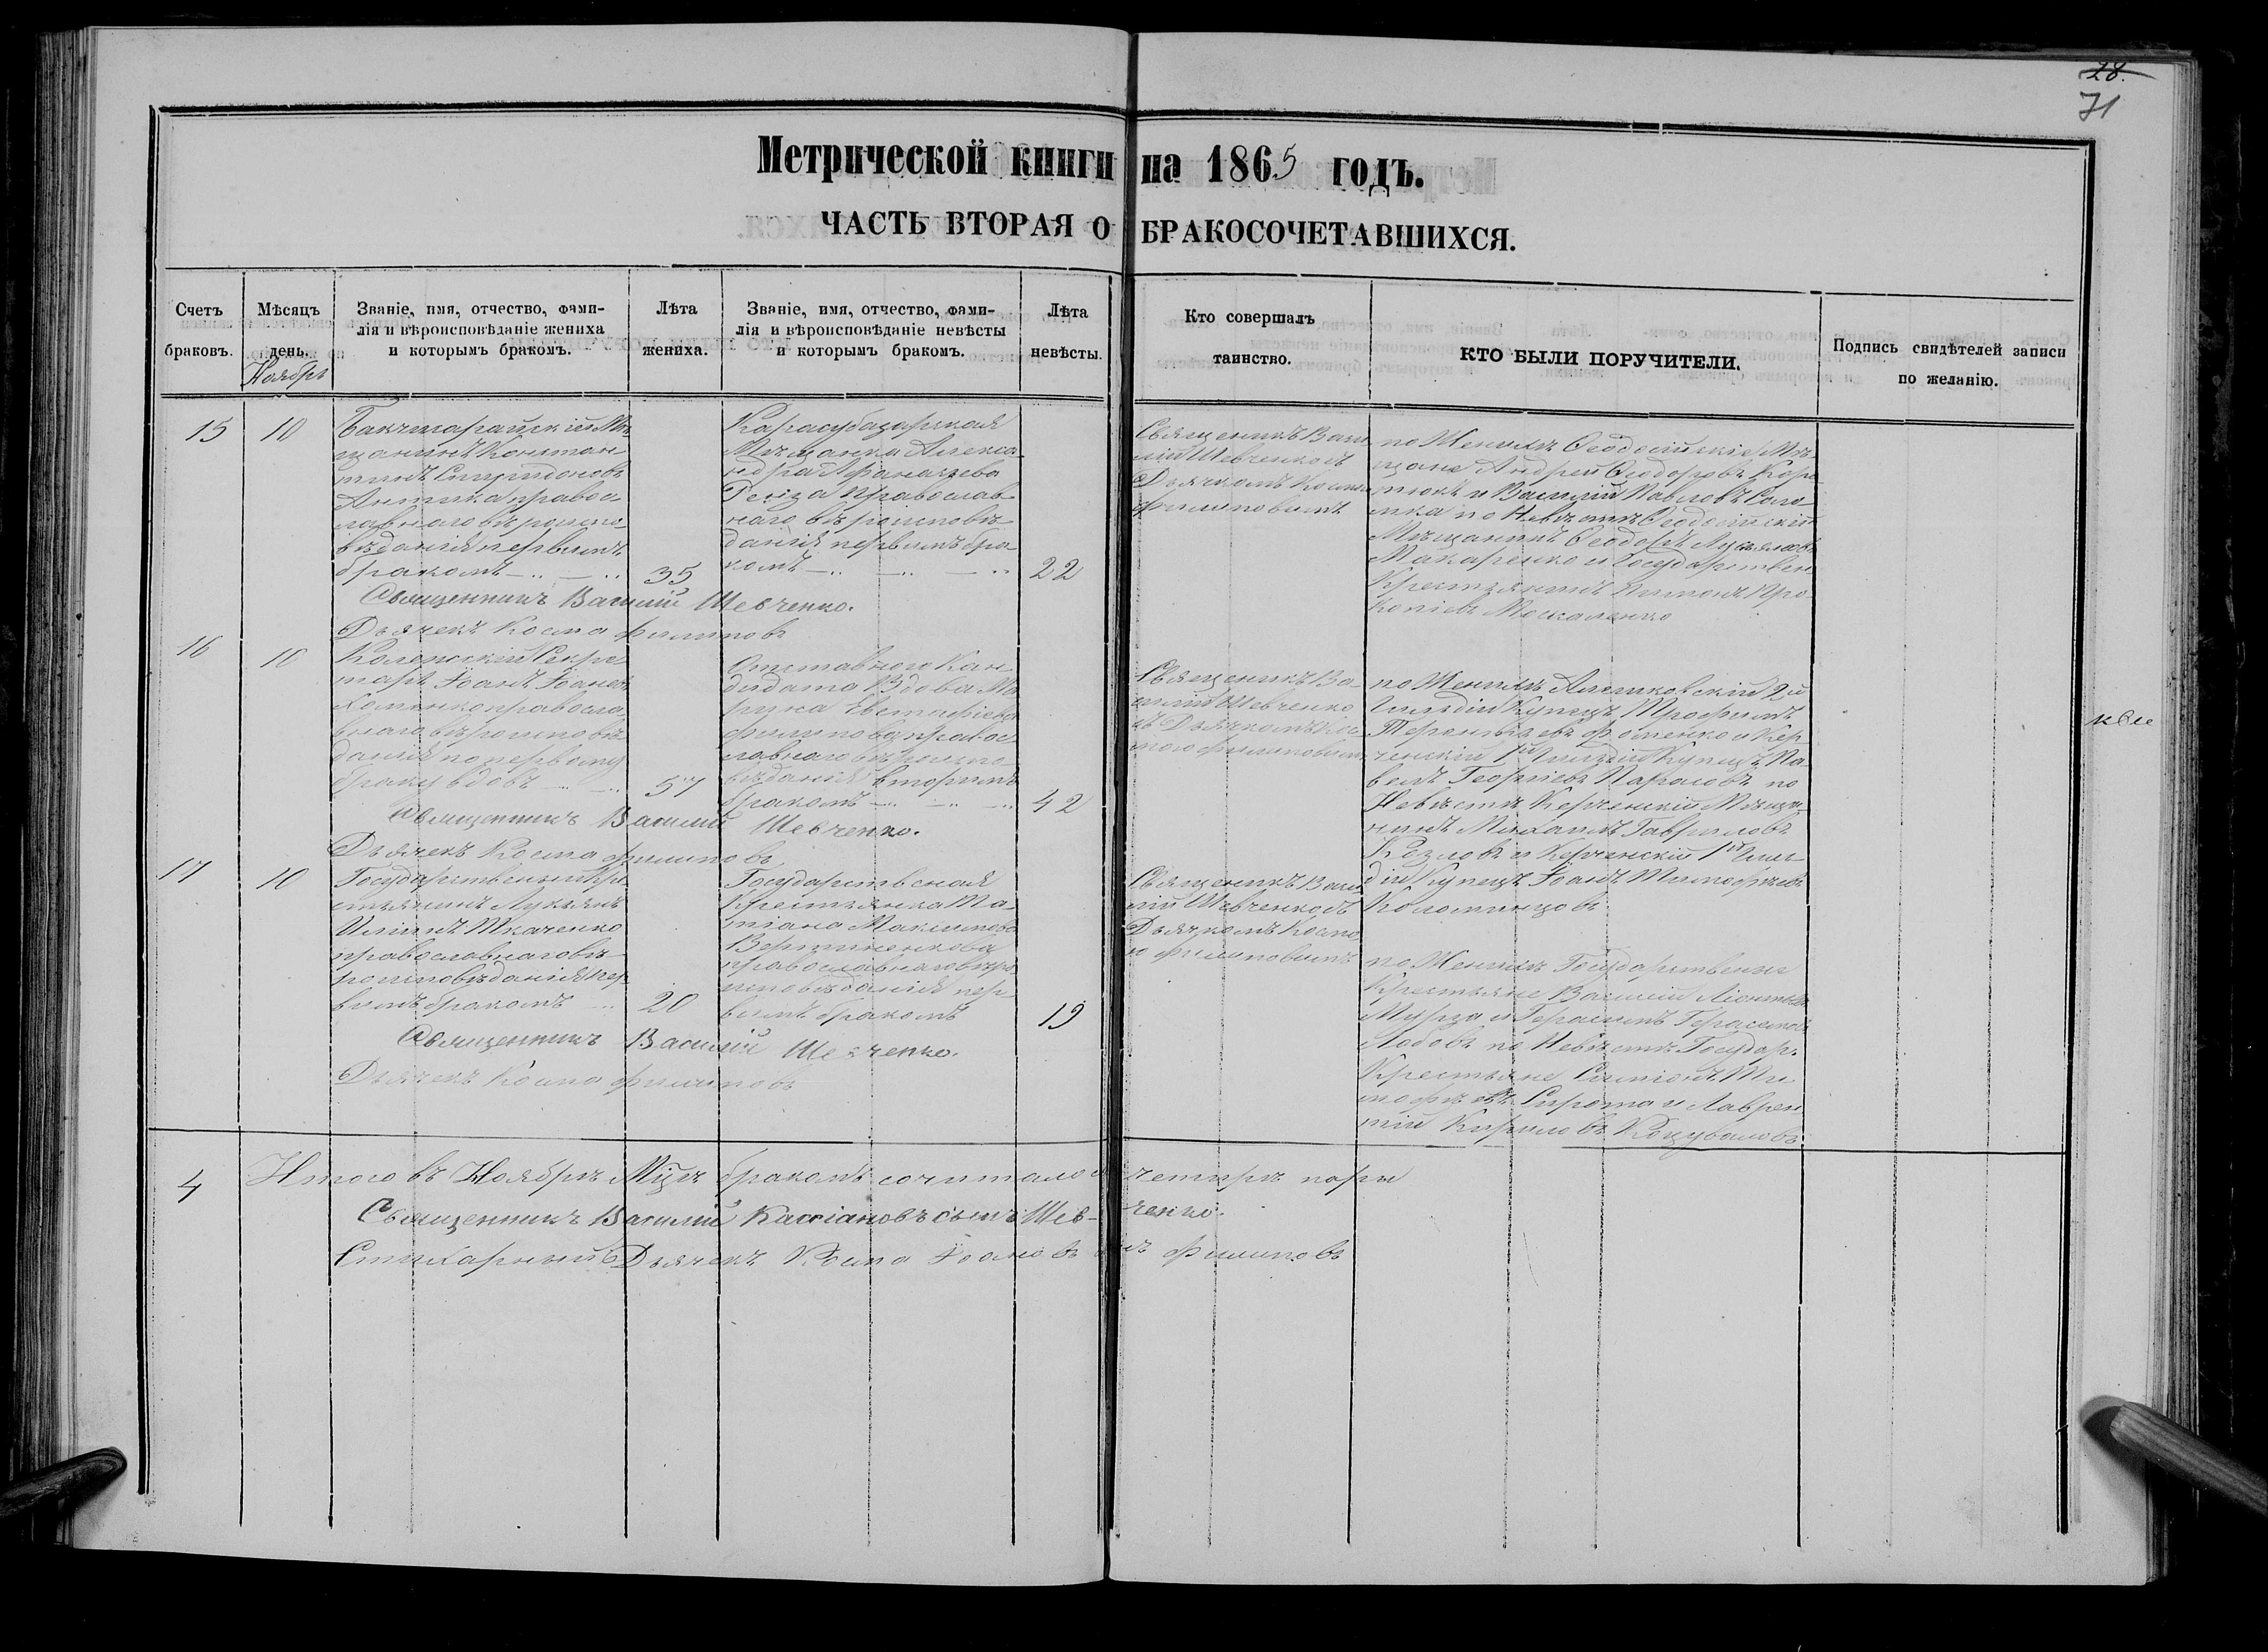 28.
71
Метрической книги на 1865 годъ.
ЧАСТЬ ВТОРАЯ О БРАКОСОЧЕТАВШИХСЯ.
Счетъ браковъ.
Мѣсяцъ день.
Ноябрь
Званіе, имя, отчество, фами-
лія и вѣроисповѣданіе жениха
и которымъ бракомъ.
Лѣта жениха.
Званіе, имя, отчество, фами-
лія и вѣроисповѣданіе невѣсты
и которымъ бракомъ.
Лѣта невѣсты.
Кто совершалъ
таинство.
КТО БЫЛИ ПОРУЧИТЕЛИ.
Подпись свидѣтелей записи
по желанію.
15
10
Бахчисарайскій Мѣ-
щанинъ Констан-
тинъ Спиридоновъ
Антика правос-
лавнаго вѣроиспо-
вѣданія первымъ
бракомъ
35
Карасубазарская
Мѣщанка Алекса-
ндра Афанасіева
православ-
наго вѣроисповѣ-
данія первымъ бра-
комъ
22
Священникъ Васи-
лій Шевченко съ
Дьячкомъ Космою
Филиповымъ
по Женихѣ Ѳеодосійскіе Мѣ-
щане Андрей Ѳеодоровъ
и Василій Павловъ
по Невѣстѣ Ѳеодосійскій
Мѣщанинъ Ѳеодоръ
Макаренко и Государствен.
Крестьянинъ Про-
копіевъ Москаленко
Священникъ Василій Шевченко.
Дьячекъ Косма Филиповъ
16
10
Колежскій Секре-
тарь Іоанъ Іоановъ
Хоменко правосла-
внаго вѣроисповѣ-
данія по первому
браку вдовъ
57
Отставного Кан-
дидата Вдова Ма-
рина Евстафіева
Филипова правос-
лавнаго вѣроиспо-
вѣданія вторымъ
бракомъ
42
Священникъ Ва-
силій Шевченко
съ Дьячкомъ Кос-
мою Филиповым
по Женихѣ 2й
Гильдіи Купецъ Трофимъ
Терентьевъ Фоменко и Кер-
ченскій 1й Гильдіи Купецъ Па-
велъ Георгіевъ по
Невѣстѣ Керченскій Мѣща-
нинъ Михаилъ Гавриловъ
Козловъ и Керченскій 1й Гиль-
діи Купецъ Іоанъ Тимофѣевъ
Коломинцовъ
Священникъ Василій Шевченко.
Дьячекъ Косма Филиповъ
17
10
Государственый Кре-
стьянинъ Лукьянъ
Ильинъ Ткаченко
православнаго вѣ-
роисповѣданія пер-
вымъ бракомъ
20
Государственая
Крестьянка Та-
тіана Максимова
православнаго вѣро-
исповѣданія пер-
вымъ бракомъ
19
Священникъ Васи-
лій Шевченко съ
Дьячкомъ Космо-
ю Филиповымъ
по Женихѣ Государственые
Крестьяне Василій Леонтьевъ
Мурза и Герасимъ Герасимов
по Невѣстѣ Государ.
Крестьяне Симіонъ Ти-
мофѣевъ Сирота и Лаврен-
тій Кириловъ
Священникъ Василій Шевченко.
Дьячекъ Косма Филиповъ
4
Итого въ Ноябрѣ Мцѣ бракомъ сочиталось четыре пары
Священникъ Василій Кассіановъ сынъ Шев-ченко.
Стихарный Дьячекъ Косма Іоановъ Филиповъ